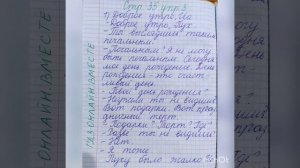 Стр 35 упр 3
1) Доброе утро, Иа
- Доброе утро, Пух
- Ты выглядишь таким
печальным.
- Печальным? Я не могу
быть печальным. Сегодня
мой день рождения. День
рождения - это счаст-
ливый день.
- Твой день рождения?
- Неужели ты не видишь?
Вот подарки. Вот празд
ничный торт.
- Подарки? Торт? Где?
- Разве ты не видишь?
- Нет.
- Я тоже
Пуху было жалко
ГДЗ ОНЛАЙН ВМЕСТЕ